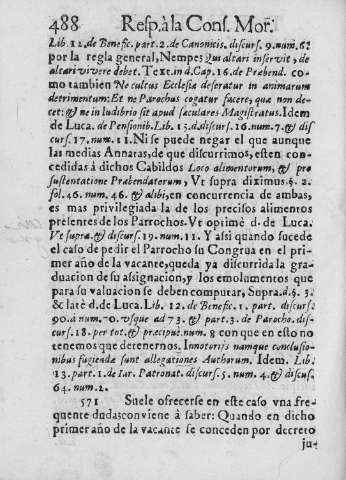 488 Resp. à la Cons. Mor.
Lib. 12. de Benefic. part. 2. de Canonicis. discurs. 9. num. 6?
por la regla general, Nempe; Qui altari inservit, de
altari vivere debet. Text. in d. Cap. 16. de Præbend. co-
mo tambien Ne cultus Ecclesiæ deseratur in animarum
detrimentum: Et ne Parochus cogatur facere, qua non de-
cet: & ne in ludibrio sit apud sæculares Magistratus. Idem
de Luca. de Pensionib. Lib. 13. d. discurs. 16. num. 7. & dis
curs. 17. num. 11. Ni se puede negar el que aunque
las medias Annatas, de que discurrimos, esten con-
cedidas à dichos Cabildos Loco alimentorum, & pro
sustentatione Præbendatorum, Vt supra diximus §. 2.
fol. 46. num. 46. & alibi, en concurrencia de ambas,
es mas privilegiada la de los precisos alimentos
presentes de los Parrochos. Vt optimè d. de Luca.
Vt supra. & discurs. 19. num. 11. Y assi quando sucede
el caso de pedir el Parrocho su Congrua en el pri-
mer año de la vacante, queda ya discurrida la gra-
duacion de su assignacion, y los emolumentos que
para su valuacion se deben computar, Supra. d. §. 3.
& latè d. de Luca. Lib. 12. de Benefic. 1. part. discurs:
90. à num. 70. vsque ad 73. & part. 3. de Parocho. dis-
curs. 18. per tot. & præcipuè. num. 8 con que en esto no
tenemos que detenernos. In notorijs namque conclusio-
nibus fugiendæ sunt allegationes Authorum. Idem. Lib.
13. part. 1. de Iur. Patronat. discurs. 5. num. 4. & discus.
64. num. 2.
571 Suele ofrecerse en este caso vna fre-
quente duda; conviene à saber: Quando en dicho
primer año de la vacante se conceden por decreto
ju-